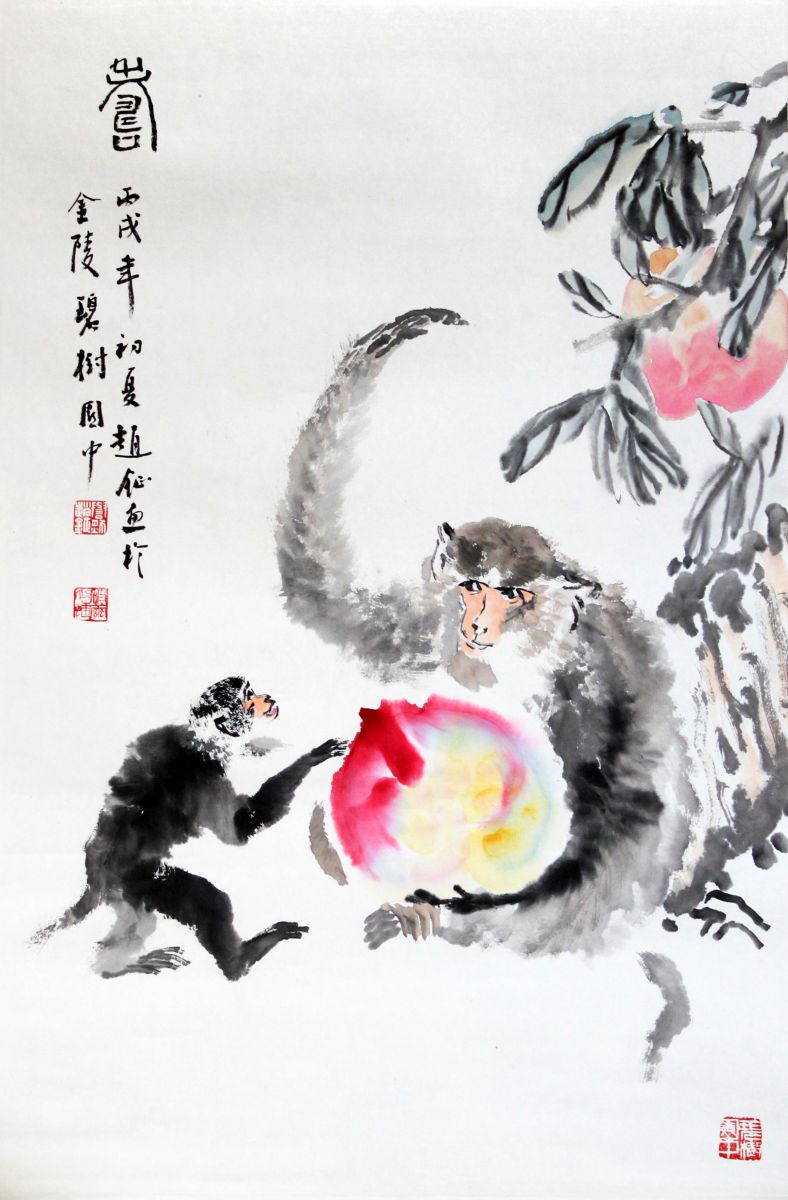 壽
丙戌年初夏趙鉦画於
金陵碧樹園中